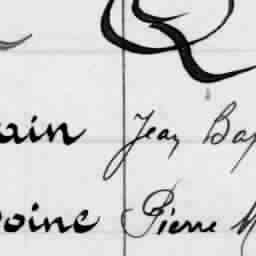 ain Jean Bap
oine Pierre M